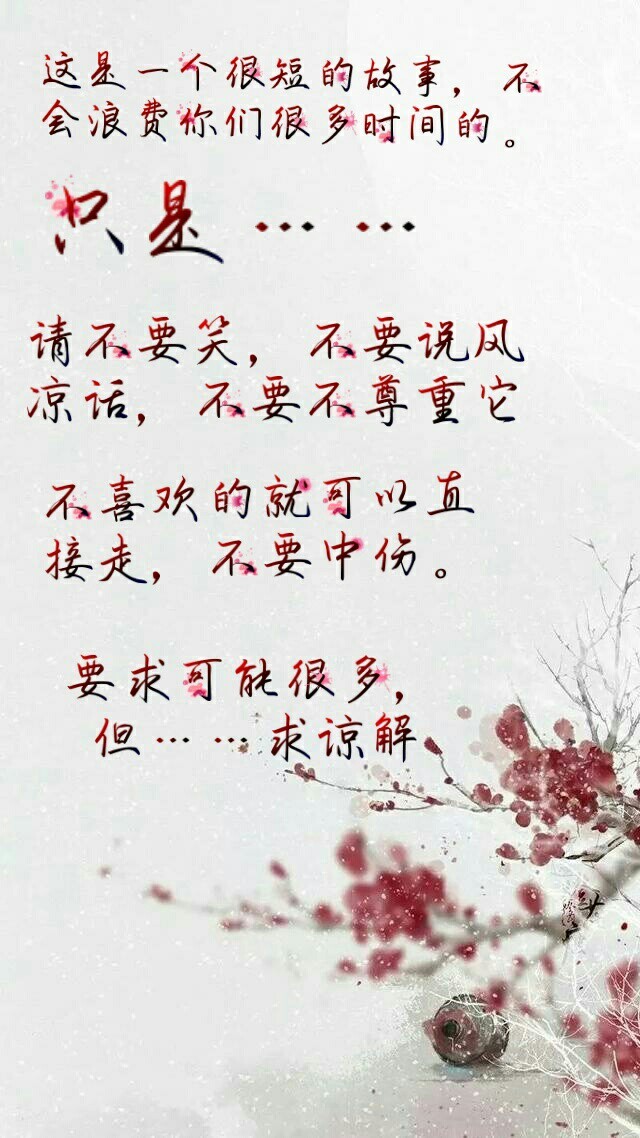 这是一个很短的故事，不
会浪费你们很多时间的。
只是……
请不要笑，不要说风
凉话，不要不尊重它
不喜欢的就可以直
接走，不要中伤。
要求可能很多，
但……求谅解